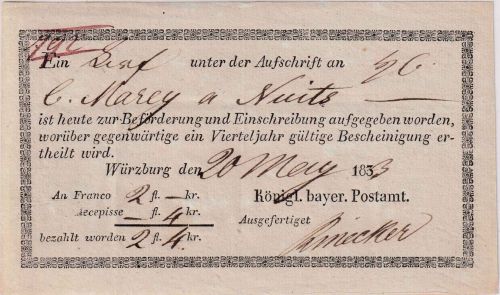 792
Ein Brief unter der Aufschrift an
C. Marey a Nuits
ist heute zur Beförderung und Einschreibung aufgegeben worden,
worüber gegenwärtige ein Vierteljahr gültige Bescheinigung er-
theilt wird.
Würzburg den 20 May 1833
An Franco 2 fl. — kr. Königl. bayer. Postamt.
Recepisse — fl. 4 kr. Ausgefertiget
bezahlt worden 2 fl. 4 kr.